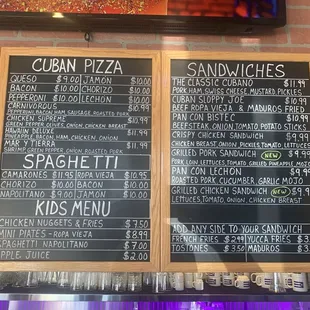 CUBAN PIZZA
QUESO $9.00 JAMON $10.00
BACON $10.00 CHORIZO $10.00
PEPPERONI $10.00 LECHON $10.00
CARNIVOROUS $10.99
BACON, HAM, SAUSAGE, ROASTED PORK
CHICKEN SUPREME $10.99
GREEN PEPPER, OLIVES, ONION, CHICKEN BREAST
HAWAIIN DELUXE $11.99
PINEAPPLE, BACON, HAM, CHICKEN, ONION
MAR Y TIERRA $11.99
SHRIMP, GREEN PEPPER, ONION, ROASTED PORK
SPAGHETTI
CAMARONES $11.95 ROPA VIEJA $10.95
CHORIZO $10.00 BACON $10.00
NAPOLITANO $9.00 JAMON $10.00
KIDS MENU
CHICKEN NUGGETS & FRIES $7.50
MINI PLATES - ROPA VIEJA $8.99
SPAGHETTI NAPOLITANO $7.00
APPLE JUICE $2.00
SANDWICHES
THE CLASSIC CUBANO $11.99
PORK, HAM, SWISS CHEESE, MUSTARD, PICKLES
CUBAN SLOPPY JOE $10.99
BEEF ROPA VIEJA & MADUROS FRIED
PAN CON BISTEC $10.99
BEEFSTEAK, ONION, TOMATO, POTATO STICKS
CRISPY CHICKEN SANDWICH $9.99
CHICKEN BREAST, ONION, PICKLES, TOMATO, LETTUCE
GRILLED PORK SANDWICH NEW $9.99
PORK LOIN, LETTUCES, TOMATO, GRILLED PINEAPPLE
PAN CON LECHON $9.99
ROASTED PORK, CUCUMBER, GARLIC MOJO
GRILLED CHICKEN SANDWICH NEW $9.99
LETTUCES, TOMATO, ONION, CHICKEN BREAST
ADD ANY SIDE TO YOUR SANDWICH
FRENCH FRIES $2.99 YUCCA FRIES $3.
TOSTONES $3.50 MADUROS $3.